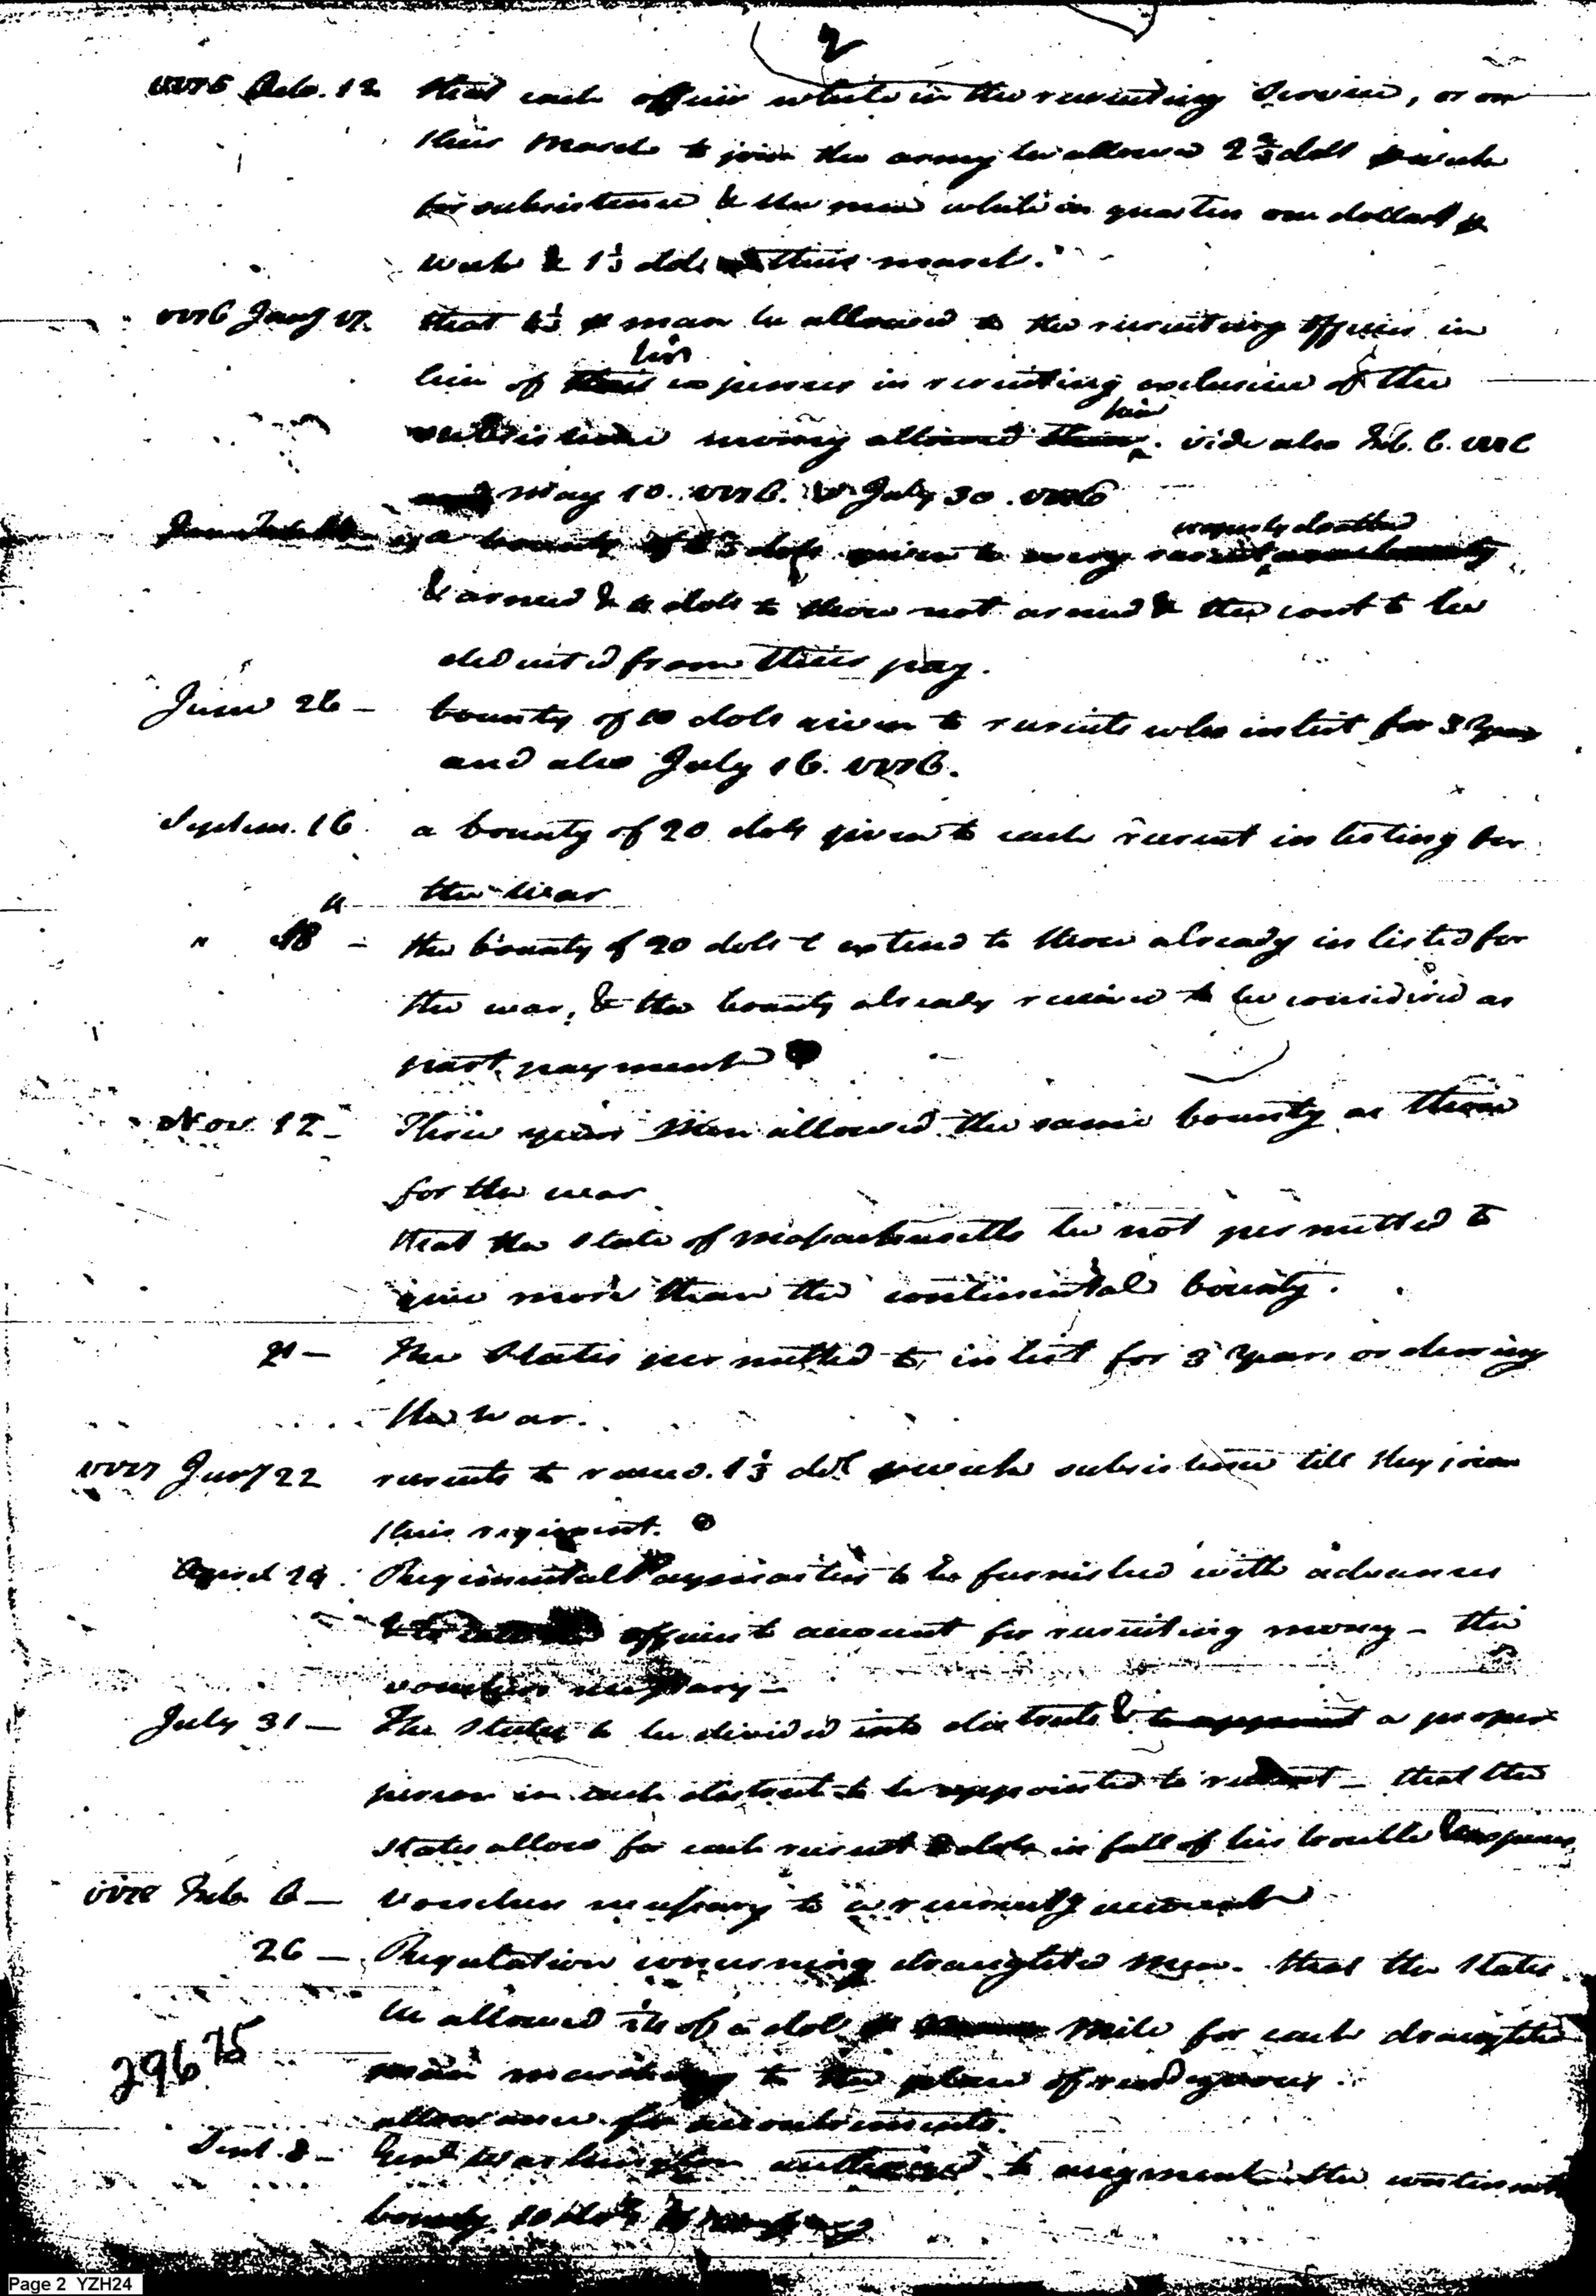 2
Octo. 12 that each officer while in the recruiting service, or on
their march to join the army be allowed 2 2/3 dols p week
for subsistence & the men while in quarters one dollar p
week & 1 1/3 dols their march.
Jany 17. that 1 1/3 p man be allowed to the recruiting officer in
his
lieu of expences in recruiting exclusive of the
him
subsistence money allowed . vide also Feb. 6.
May 10. July 30.
properly cloathed
a bounty of dols given to every recruit
& armed & 4 dols to those not armed & the cost to be
deducted from their pay.
June 26 – bounty of 10 dols given to recruits who inlist for 3 Years
and also July 16.
Septem. 16 a bounty of 20 dols given to each recruit inlisting for
the war
" 18 – the bounty of 20 dols to extend to those already inlisted for
the war, & the bounty already received to be considered as
part payment
Nov. 12 – Three years Men allowed the same bounty as those
for the war
that the State of Massachusetts be not permitted to
give more than the continental bounty.
21 – The States permitted to inlist for 3 Years or during
the war.
Jany 22 recruits to receive 1 1/3 dol p week subsistence till they join
their regiment.
April 29. Regimental Paymasters to be furnished with advances
officers to account for recruiting money – the
vouchers necessary –
July 31 – The States to be divided into districts & a proper
person in each district to be appointed to recruit – that the
States allow for each recruit 8 dols in full of his trouble & expences
Feb. 6 – Vouchers necessary to a recruiting account
26 – Regulation concerning draughted Men. that the States
be allowed of a dol p Mile for each draughted
man marching to the place of rendezvous.
29675
allowance for accoutrements.
Sept. 8 – Genl Washington authorized to augment the continental
bounty 10 dols
Page 2 YZH24